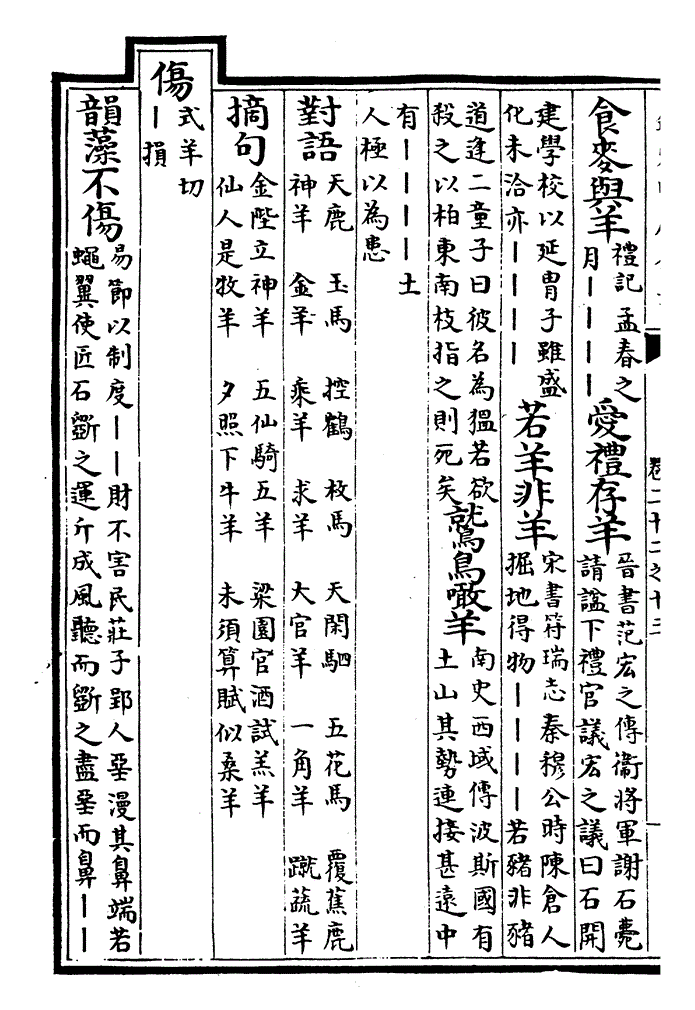 卷二十二之十三
食麥與羊
禮記孟春之
月丨丨丨丨
愛禮存羊
晉書范宏之傳衞將軍謝石薨
請諡下禮官議宏之議曰石開
建學校以延胄子雖盛
化未洽亦丨丨丨丨
若羊非羊
宋書符瑞志秦穆公時陳倉人
掘地得物丨丨丨丨若豬非豬
道逢二童子曰彼名為若欲
殺之以柏東南枝指之則死矣
鷲鳥噉羊
南史西域傳波斯國有
土山其勢連接甚遠中
有丨丨丨丨土
人極以為患
對語
天鹿 玉馬 控鶴 枚馬 天閑駟 五花馬 覆蕉鹿
神羊 金羊 乘羊 求羊 大官羊 一角羊 蹴蔬羊
摘句
金陛立神羊 五仙騎五羊 梁園官酒試羔羊
仙人是牧羊 夕照下牛羊 未須算賦似桑羊
傷
式羊切
丨損
韻藻不傷
易節以制度丨丨財不害民莊子郢人堊漫其鼻端若
蠅翼使匠石斵之運斤成風聽而斵之盡堊而鼻丨丨